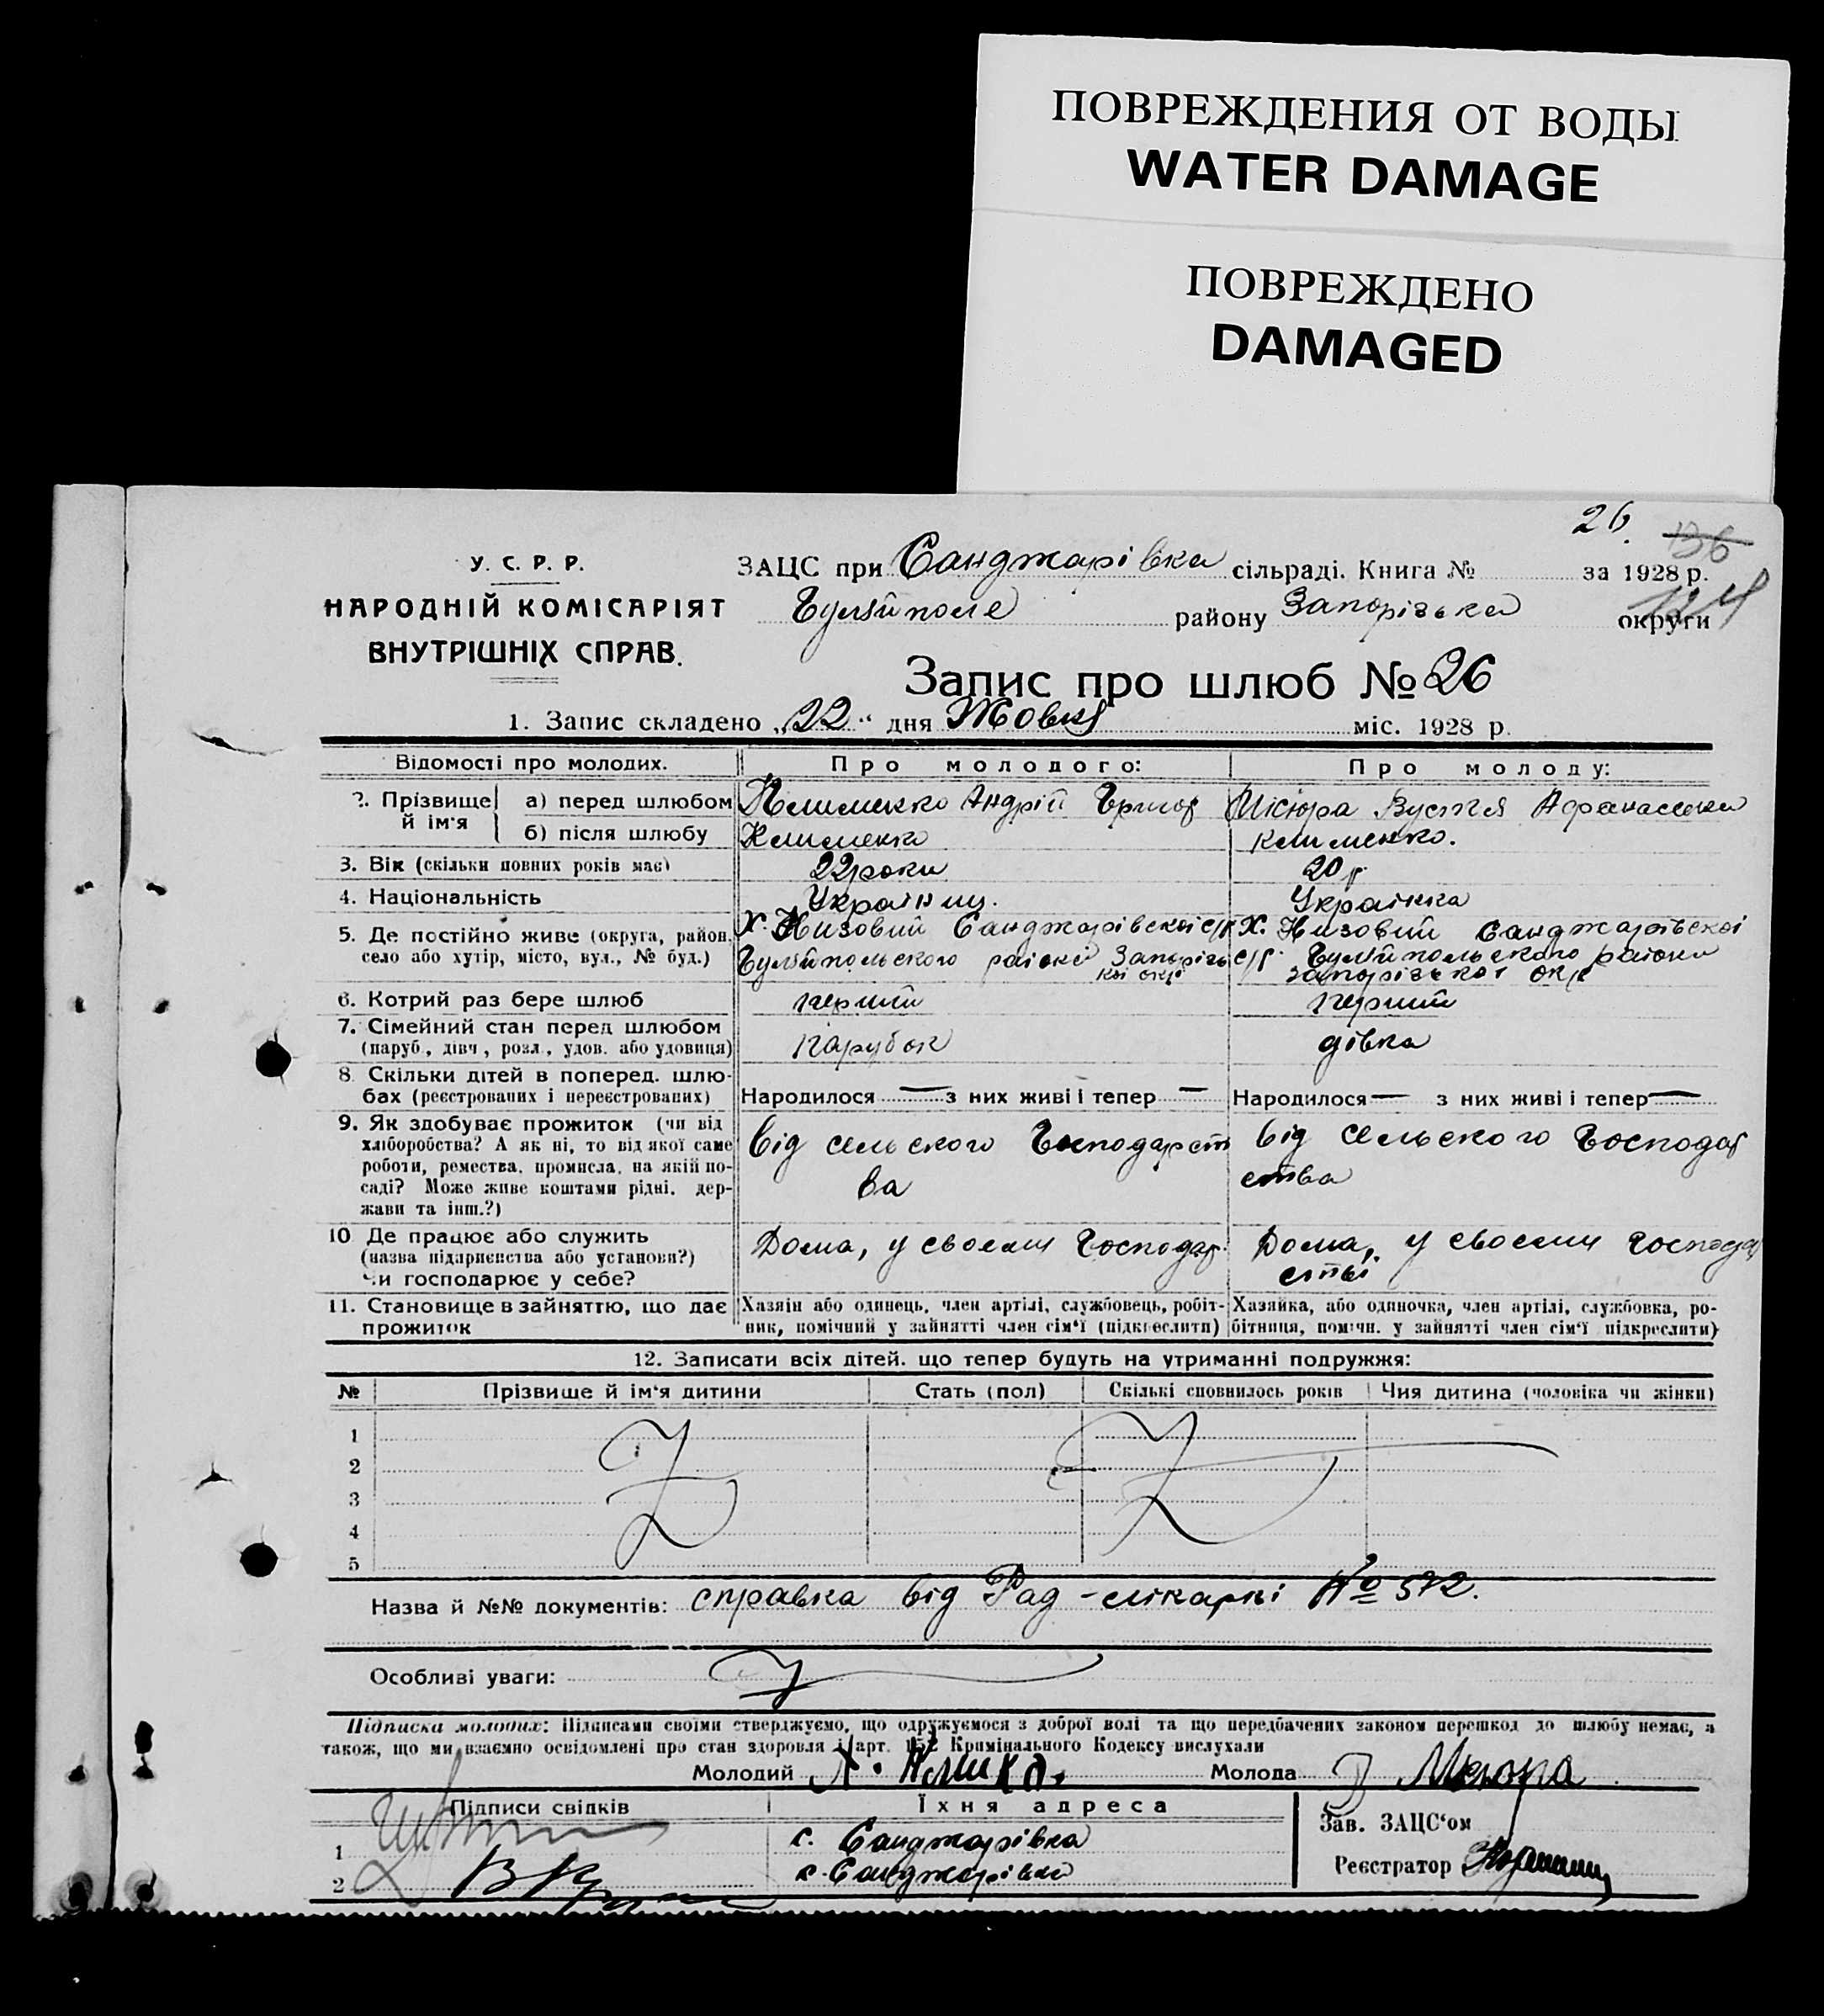 ПОВРЕЖДЕНИЯ ОТ ВОДЫ
WATER DAMAGE
ПОВРЕЖДЕНО
DAMAGED
26. 136
124
У. С. Р. Р.
НАРОДНІЙ КОМІСАРІЯТ
ВНУТРІШНІХ СПРАВ.
ЗАЦС при Санджарівка сільраді. Книга № за 1928 р.
Гуляйполе району Запорізька округи
Запис про шлюб № 26
1. Запис складено „22“ дня Жовт міс. 1928 р.
Відомості про молодих. Про молодого: Про молоду:
2. Прізвище й ім'я а) перед шлюбом Клименко Андрій Григор Вустя Афанасьевна
б) після шлюбу Клименко Клименко.
3. Вік (скільки повних років має) 22 роки 20 р.
4. Національність Українец. Українка
5. Де постійно живе (округа, район, село або хутір, місто, вул., № буд.)
Х. Низовий Санджарівскої с/р Гуляйпольского району Запорізької окр
Х. Низовий Санджарівскої с/р. Гуляйпольского району Запорізької окр
6. Котрий раз бере шлюб перший перший
7. Сімейний стан перед шлюбом
(паруб., дівч., розл., удов. або удовиця) парубок дівка
8. Скільки дітей в поперед. шлюбах (реєстрованих і нереєстрованих) Народилося — з них живі і тепер — Народилося — з них живі і тепер —
9. Як здобуває прожиток (чи від
хліборобства? А як ні, то від якої саме
роботи, ремества, промисла, на якій по-
саді? Може живе коштами рідні, дер-
жави та інш.?)
від сельского Господарст
ва
від сельского Господар
ства
10 Де працює або служить
(назва підприємства або установи?)
Чи господарює у себе?
Дома, у своєму Господар.
Дома, у своєму господар
стві
11. Становище в зайняттю, що дає
прожиток
Хазяїн або одинець, член артілі, службовець, робіт-
ник, помічний у зайнятті член сім'ї (підкреслити)
Хазяйка, або одиночка, член артілі, службовка, ро-
бітниця, помічн. у зайнятті член сім'ї підкреслити)
12. Записати всіх дітей. що тепер будуть на утриманні подружжя:
№ Прізвише й ім'я дитини Стать (пол) Скількі сповнилось років Чия дитина (чоловіка чи жінки)
1
2
3
4
5
Назва й №№ документів: справка від Рад-лікарні № 572.
Особливі уваги:
Підписка молодих: Підписами своїми стверджуємо, що одружуємося з доброї волі та що передбачених законом перешкод до шлюбу немає, а
також, що ми взаємно освідомлені про стан здоровля і арт. 152 Кримінального Кодексу вислухали
Молодий Молода
Підписи свідків Їхня адреса Зав. ЗАЦС'ом
1 с. Санджарівка
2 с. Санджарівка
Реєстратор